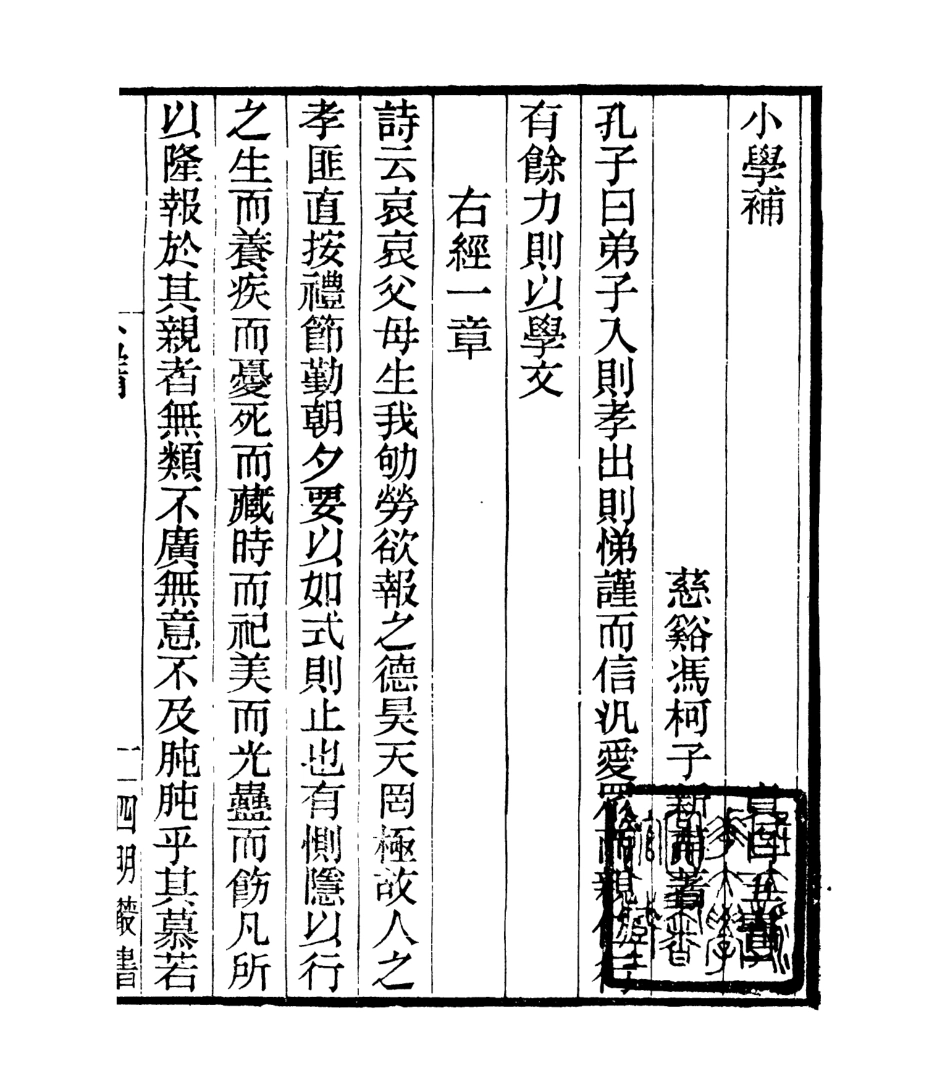 小學補
慈谿馮柯子新甫著
孔子曰弟子入則孝出則悌謹而信汎愛眾而親仁行
有餘力則以學文
右經一章
詩云哀哀父母生我劬勞欲報之德昊天罔極故人之
孝匪直按禮節勤朝夕要以如式則止也有惻隱以行
之生而養疾而憂死而藏時而祀美而光蠱而飭凡所
以隆報於其親者無類不廣無意不及肫肫乎其慕若
一四明叢書